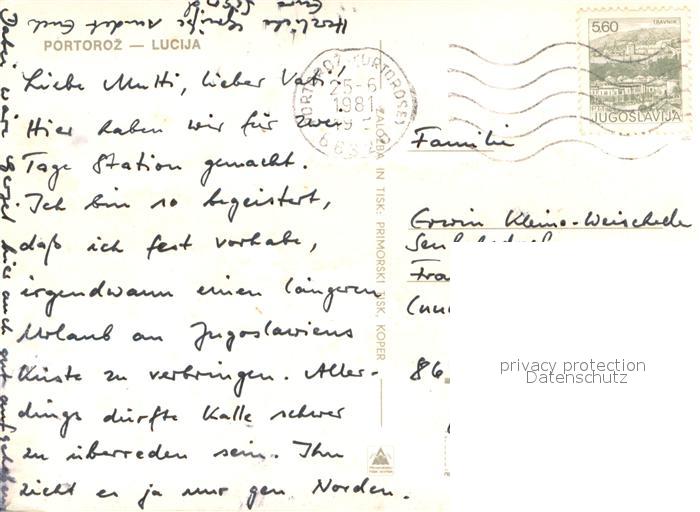 PORTOROŽ — LUCIJA
Liebe Mutti, lieber Vati!
Hier haben wir für zwei
Tage Station gemacht.
Ich bin so begeistert,
daß ich fest vorhabe,
irgendwann einen längeren
Urlaub an Jugoslawiens
Küste zu verbringen. Aller-
dings dürfte Kalle schwer
zu überreden sein. Ihn
zieht es ja nur gen Norden.
Dabei wäre hier auch gut aufgehoben
Herzliche Grüße sendet Euch
Eure
ZALOŽBA IN TISK: PRIMORSKI TISK, KOPER
25-6
1981
TRAVNIK
5.60
JUGOSLAVIJA
Familie
Erwin Kleine-Weischede
86
privacy protection
Datenschutz